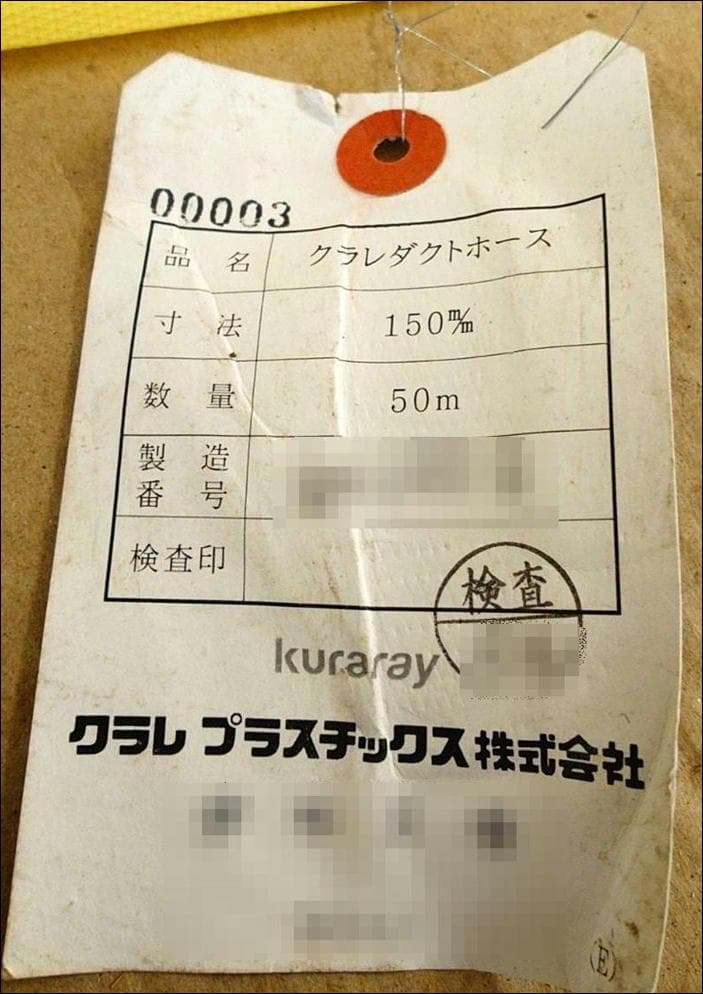 00003
品名 クラレダクトホース
寸法 150㎜
数量 50m
製造
番号
検査印
検査
kuraray
クラレ プラスチックス 株式会社
(E)